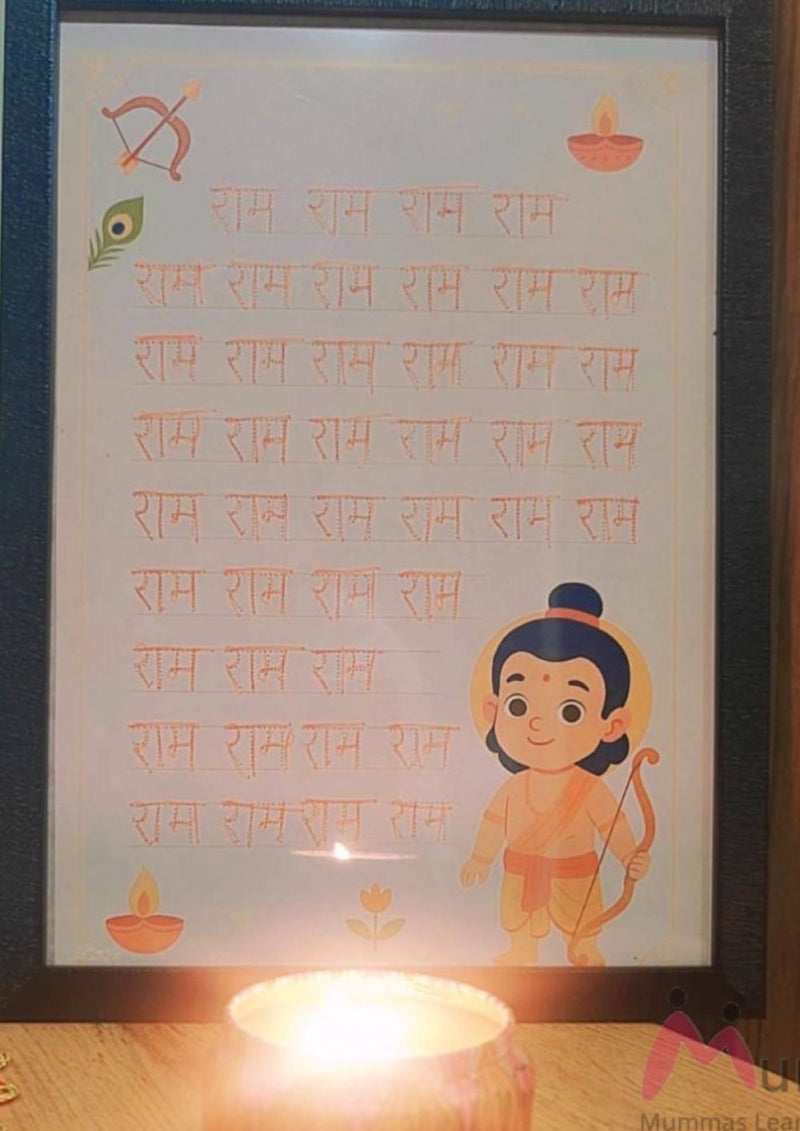 राम राम राम राम
राम राम राम राम राम राम
राम राम राम राम राम राम
राम राम राम राम राम राम
राम राम राम राम राम राम
राम राम राम राम
राम राम राम
राम राम राम राम
राम राम राम राम
Mummas